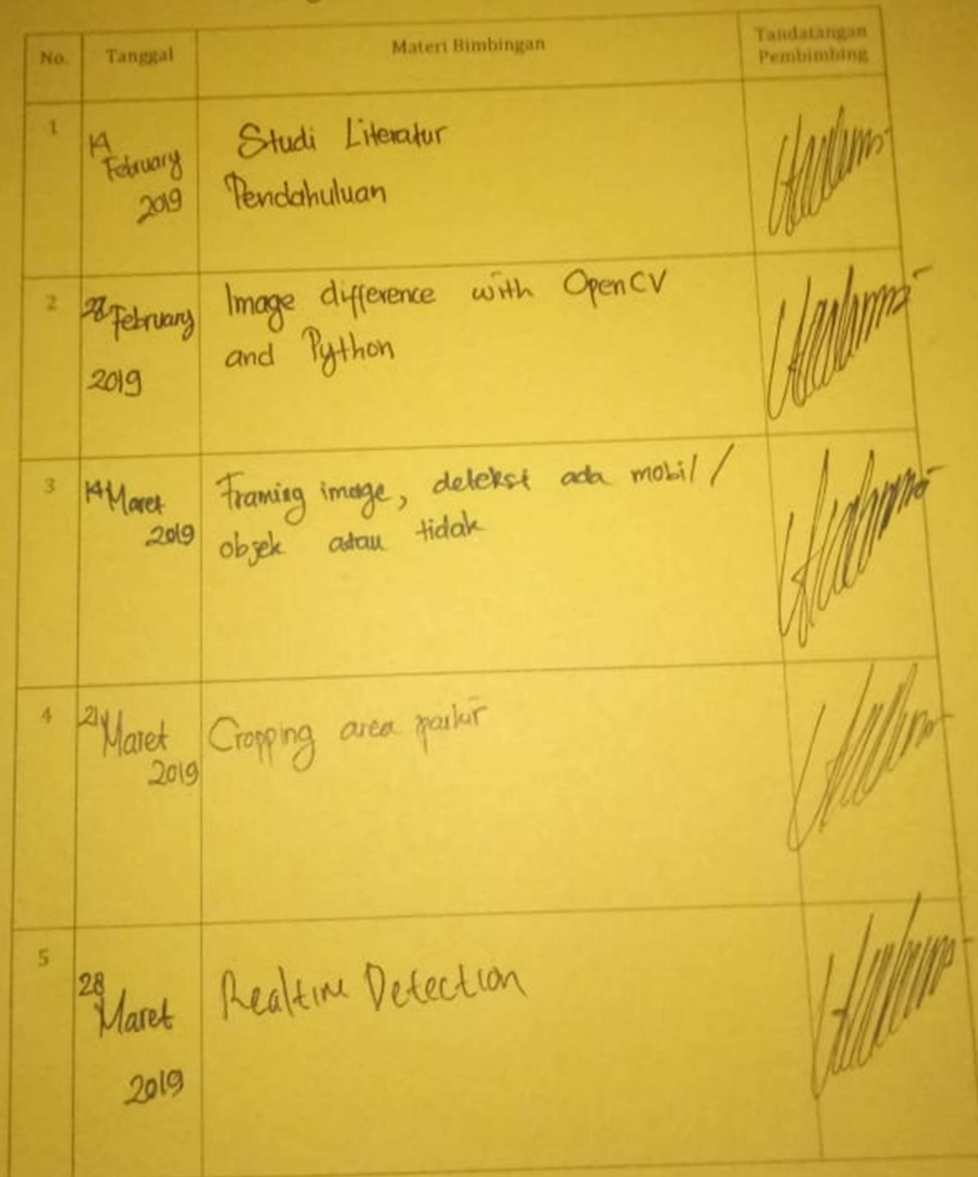 No. Tanggal Materi Bimbingan Tandatangan
Pembimbing
1 14 February 2019 Studi Literatur
Pendahuluan
2 28 February 2019 Image difference with OpenCV
and Python
3 14 Maret 2019 Framing image, deteksi ada mobil /
objek atau tidak
4 21 Maret 2019 Cropping area parkir
5 28 Maret 2019 Realtime Detection